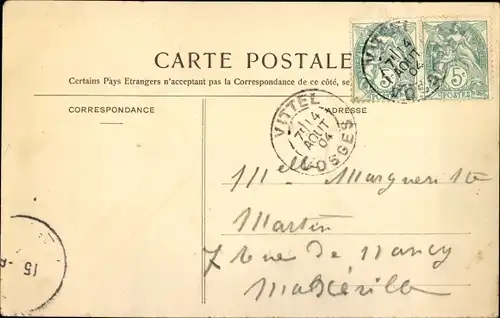 CARTE POSTALE
Certains Pays Etrangers n'acceptant pas la Correspondance de ce côté, se
CORRESPONDANCE
ADRESSE
VITTEL
7 14
AOUT
04
VOSGES
VITTEL
7 14
AOUT
04
VOSGES
5c
POSTES
15
Melle Marguerite
Martin
7 Rue de Nancy